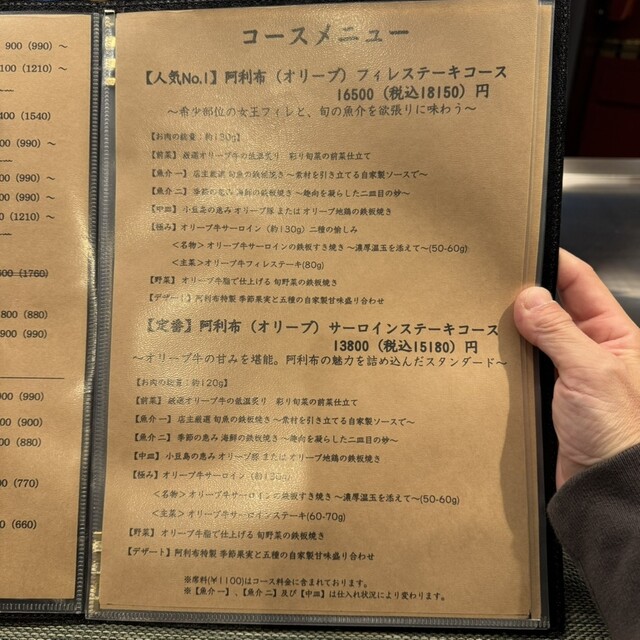 900 (990) ～
100 (1210) ～
400 (1540)
00 (990) ～
00 (990) ～
00 (990) ～
0 (1210) ～
600 (1760)
800 (880)
900 (990)
00 (990)
00 (900)
00 (880)
00 (770)
0 (660)
コースメニュー
【人気No.1】阿利布（オリーブ）フィレステーキコース
16500（税込18150）円
～希少部位の女王フィレと、旬の魚介を欲張りに味わう～
【お肉の総量：約130g】
【前菜】厳選オリーブ牛の低温炙り 彩り旬菜の前菜仕立て
【魚介一】店主厳選 旬魚の鉄板焼き ～素材を引き立てる自家製ソースで～
【魚介二】季節の恵み 海鮮の鉄板焼き ～趣向を凝らした二皿目の妙～
【中皿】小豆島の恵み オリーブ豚 または オリーブ地鶏の鉄板焼き
【極み】オリーブ牛サーロイン（約130g）二種の愉しみ
＜名物＞オリーブ牛サーロインの鉄板すき焼き ～濃厚温玉を添えて～(50-60g)
＜主菜＞オリーブ牛フィレステーキ(80g)
【野菜】オリーブ牛脂で仕上げる 旬野菜の鉄板焼き
【デザート】阿利布特製 季節果実と五種の自家製甘味盛り合わせ
【定番】阿利布（オリーブ）サーロインステーキコース
13800（税込15180）円
～オリーブ牛の甘みを堪能。阿利布の魅力を詰め込んだスタンダード～
【お肉の総量：約120g】
【前菜】厳選オリーブ牛の低温炙り 彩り旬菜の前菜仕立て
【魚介一】店主厳選 旬魚の鉄板焼き ～素材を引き立てる自家製ソースで～
【魚介二】季節の恵み 海鮮の鉄板焼き ～趣向を凝らした二皿目の妙～
【中皿】小豆島の恵み オリーブ豚 または オリーブ地鶏の鉄板焼き
【極み】オリーブ牛サーロイン
＜名物＞オリーブ牛サーロインの鉄板すき焼き ～濃厚温玉を添えて～(50-60g)
＜主菜＞オリーブ牛サーロインステーキ(60-70g)
【野菜】オリーブ牛脂で仕上げる 旬野菜の鉄板焼き
【デザート】阿利布特製 季節果実と五種の自家製甘味盛り合わせ
※席料(¥1100)はコース料金に含まれております。
※【魚介一】、【魚介二】及び【中皿】は仕入れ状況により変わります。